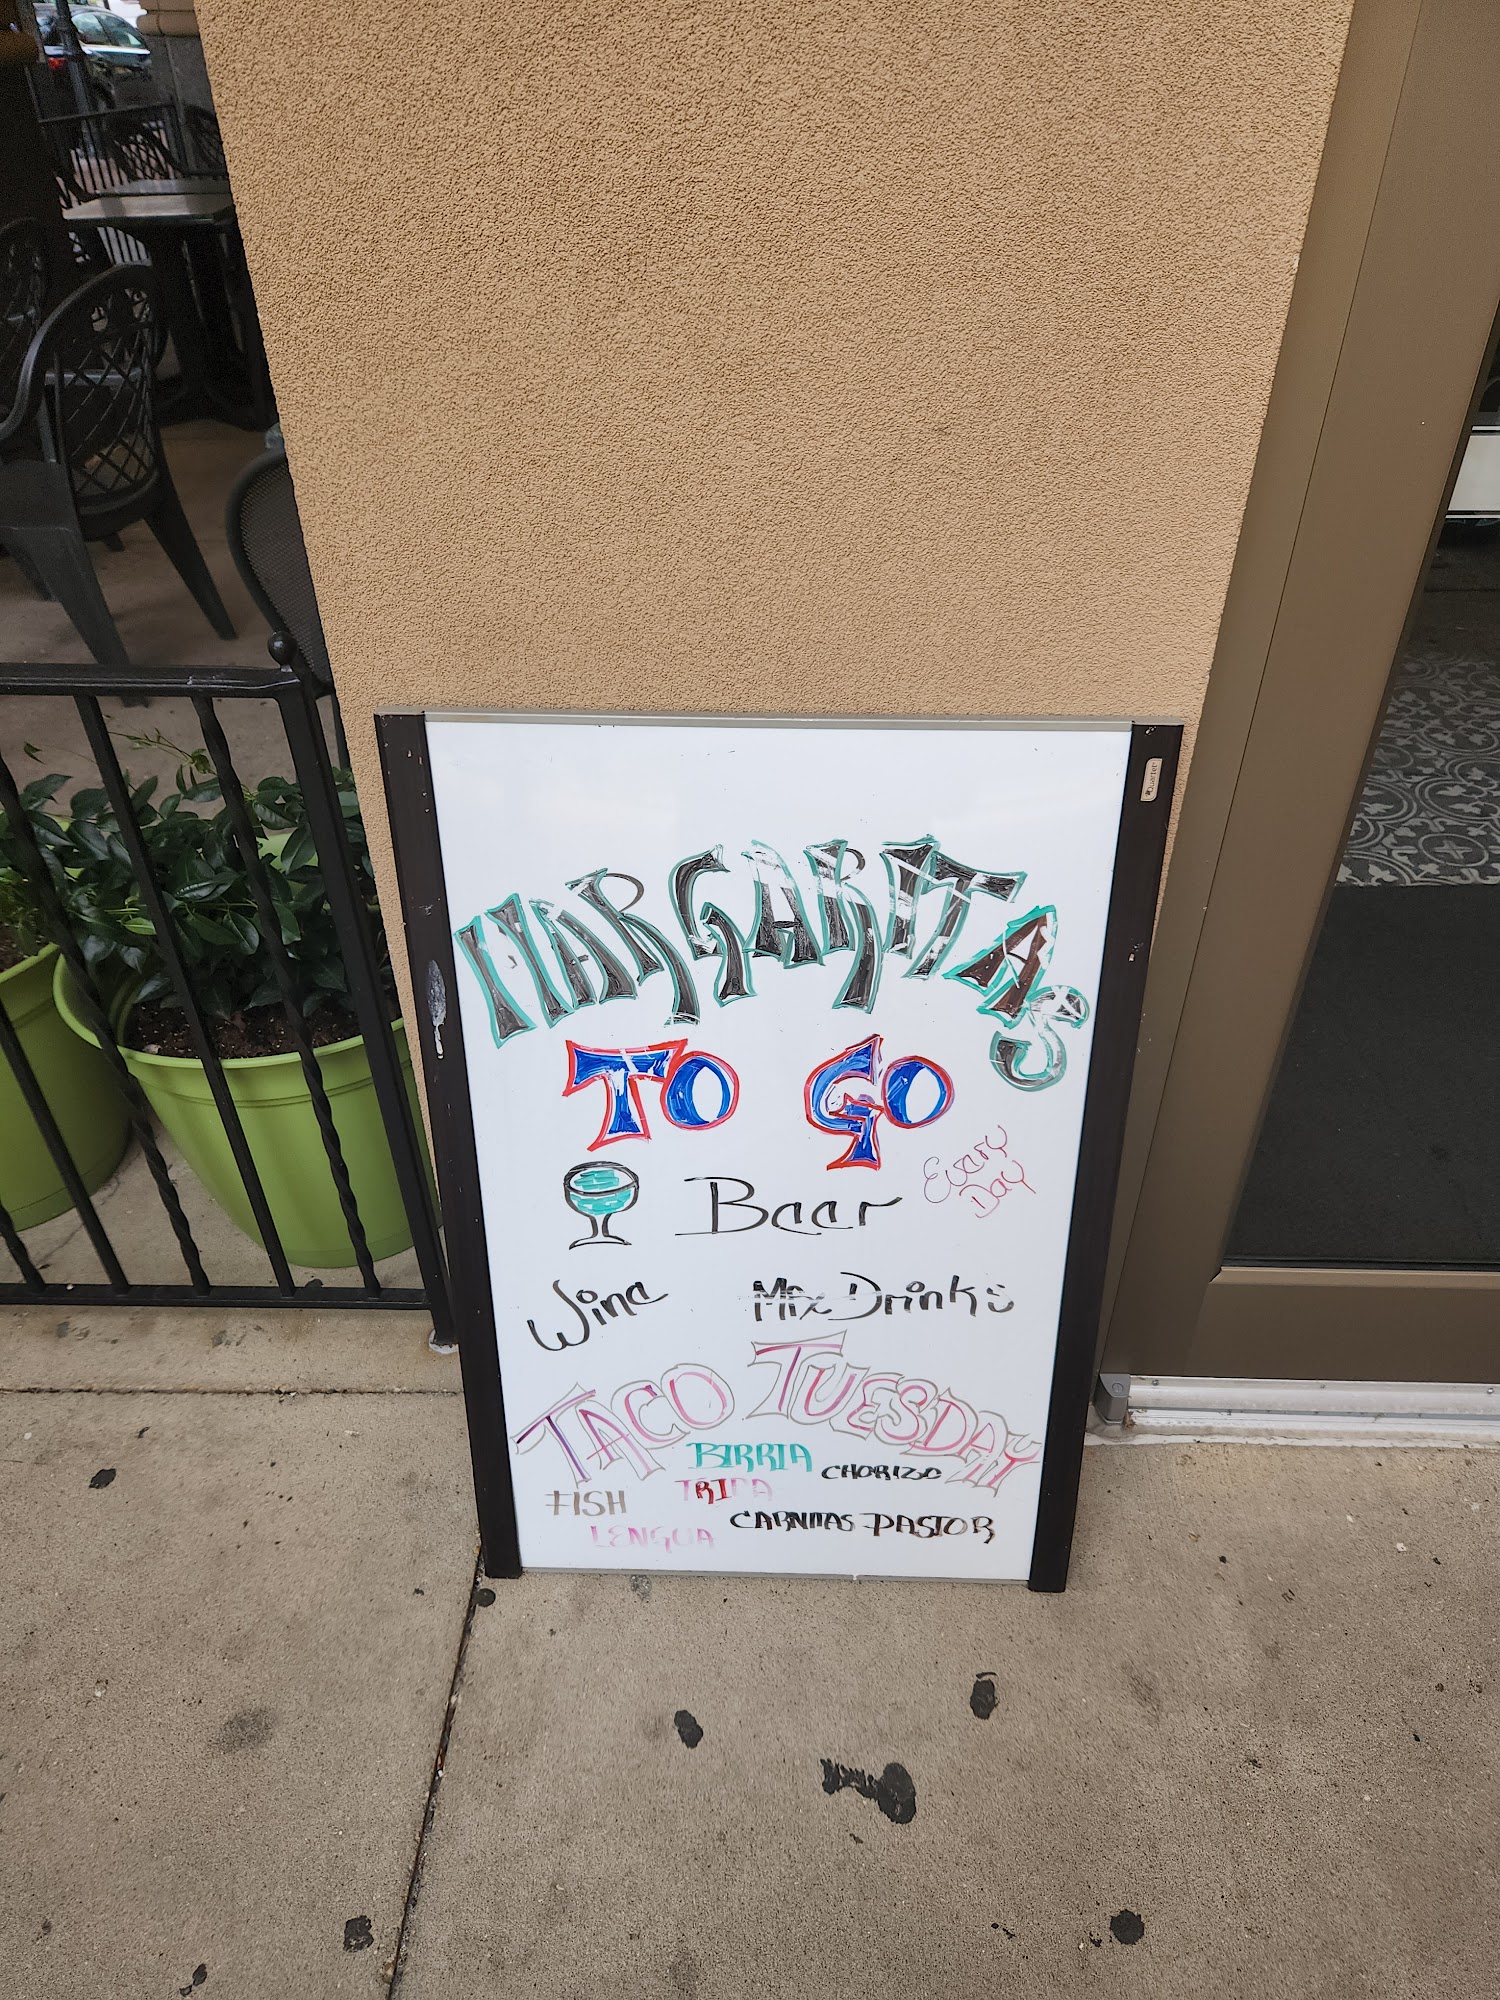 MARGARITAS
TO GO
Every
Day
Beer
Wine
Mix Drinks
TACO TUESDAY
BIRRIA
CHORIZO
TRIPA
FISH
CARNITAS PASTOR
LENGUA
Quartet